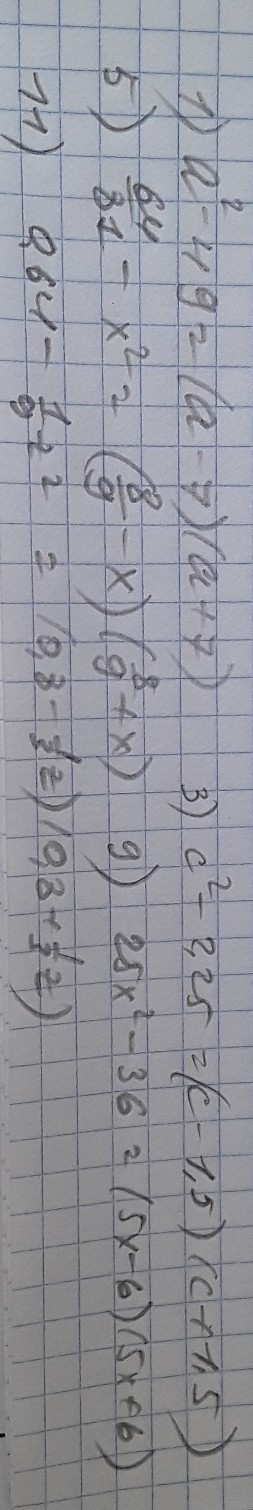 1) a² - 49 = (a - 7)(a + 7) 3) c² - 2,25 = (c - 1,5)(c + 1,5)
5) 64/81 - x² = (8/9 - x)(8/9 + x) 9) 25x² - 36 = (5x - 6)(5x + 6)
11) 0,64 - 1/9 z² = (0,8 - 1/3 z)(0,8 + 1/3 z)